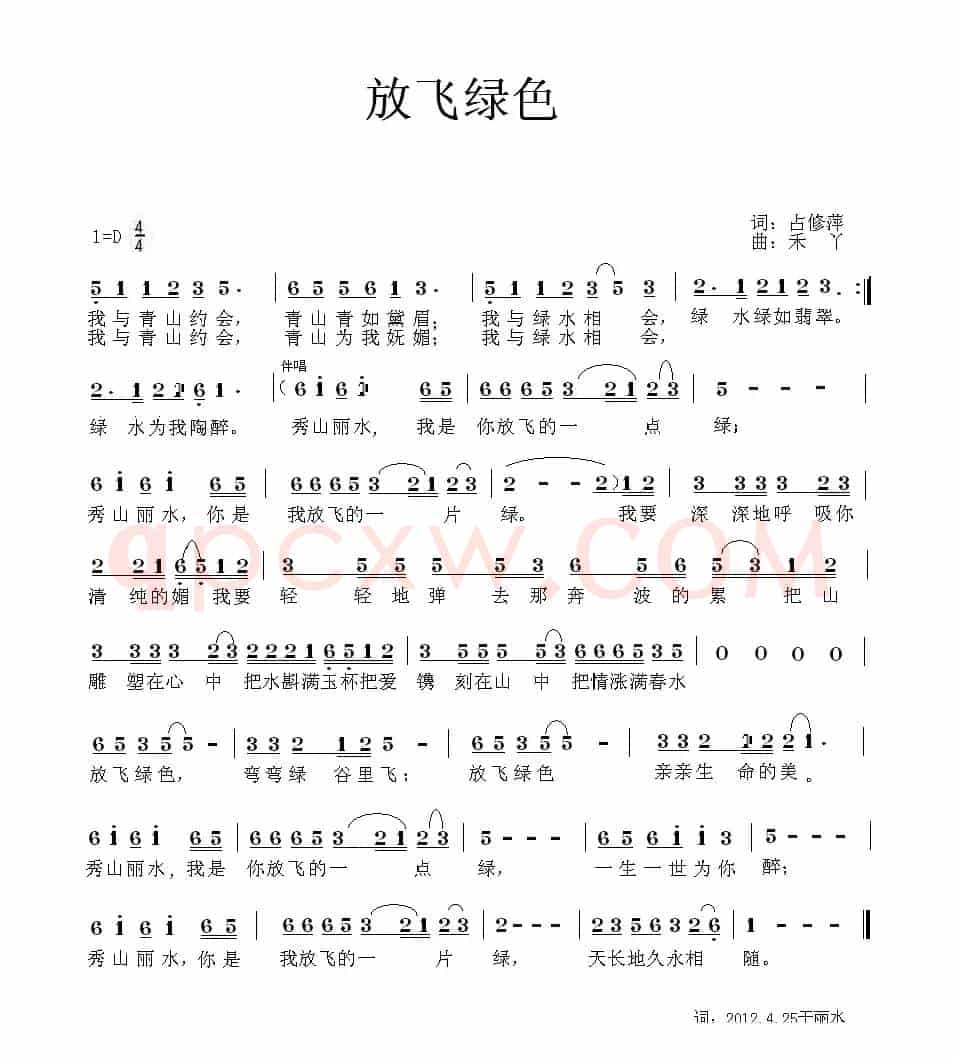 放飞绿色
词：占修萍
1=D 4/4
曲：禾 丫
5 1 1 2 3 5. | 6 5 5 6 1 3. | 5 1 1 2 3 5 3 | 2. 1 2 1 2 3. :‖
我与青山约会， 青山青如黛眉； 我与绿水相 会， 绿 水绿如翡翠。
我与青山约会， 青山为我妩媚； 我与绿水相 会，
伴唱
2. 1 2 1 6 1. | (6 i 6 i 6 5 | 6 6 6 5 3 2 1 2 3 | 5 - - - |
绿 水为我陶醉。 秀山丽水， 我是 你放飞的一 点 绿；
6 i 6 i 6 5 | 6 6 6 5 3 2 1 2 3 | 2 - - 2) 1 2 | 3 3 3 3 3 2 |
秀山丽水，你是 我放飞的一 片 绿。 我要 深 深地呼 吸你
qpcxw.COM
2 2 1 6 5 1 2 | 3 5 5 5 5 3 | 6 5 5 3 1 2 |
清 纯的媚 我要 轻 轻地弹 去那奔 波的累 把山
3 3 3 3 2 3 2 2 2 1 6 5 1 2 | 3 5 5 5 5 3 6 6 6 5 3 5 | 0 0 0 0 |
雕 塑在心 中 把水斟满玉杯把爱 镌 刻在山 中 把情涨满春水
6 5 3 5 5 - | 3 3 2 1 2 5 - | 6 5 3 5 5 - | 3 3 2 1 2 2 2 1. |
放飞绿色， 弯弯绿 谷里飞； 放飞绿色 亲亲生 命的美。
6 i 6 i 6 5 | 6 6 6 5 3 2 1 2 3 | 5 - - - | 6 5 6 i i 3 | 5 - - - |
秀山丽水，我是 你放飞的一 点 绿， 一生一世为你 醉；
6 i 6 i 6 5 | 6 6 6 5 3 2 1 2 3 | 2 - - - | 2 3 5 6 3 2 6 | 1 - - - ‖
秀山丽水，你是 我放飞的一 片 绿， 天长地久永相 随。
词：2012.4.25于丽水